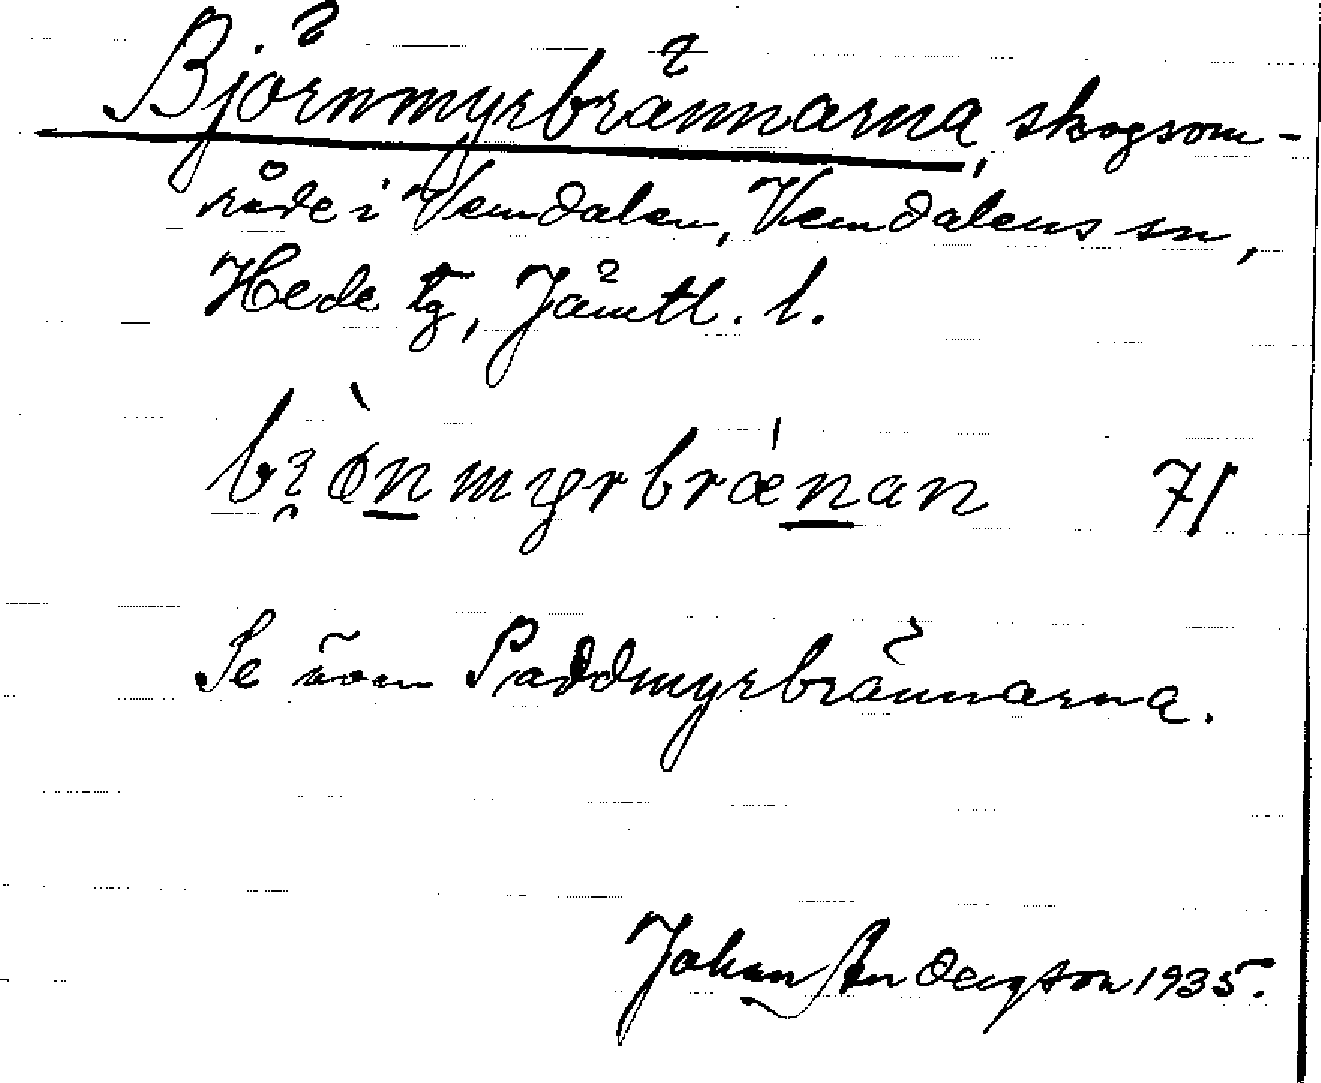 Björnmyrbrännarna, skogsom-
råde i Vemdalen, Vemdalens sn,
Hede tg, Jämtl. l.
bɿ̯ö̀nmyrbrǽnan 71
Se även Paddmyrbrännarna.
Johan Andersson 1935.